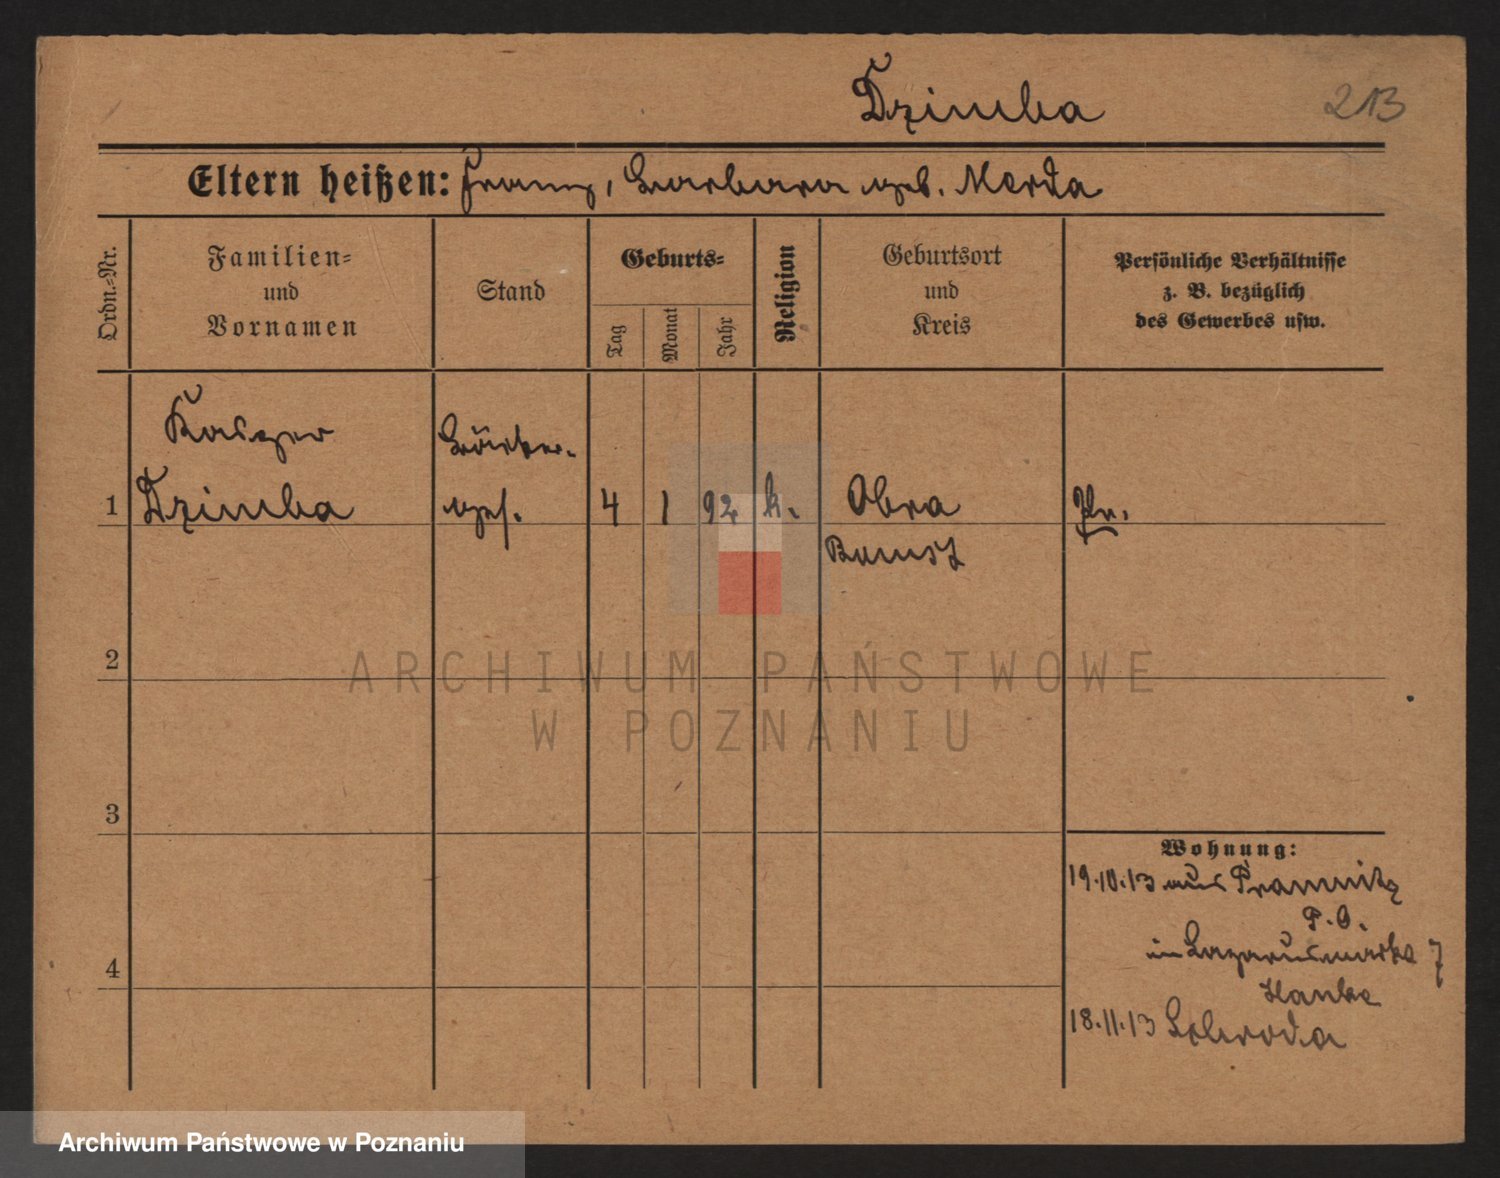 Dzimba
213
Eltern heißen: Franz, Barbara geb. Merda
Ordn.-Nr.
Familien-
und
Vornamen
Stand
Geburts-
Tag
Monat
Jahr
Religion
Geburtsort
und
Kreis
Persönliche Verhältnisse
z. B. bezüglich
des Gewerbes usw.
Kasper Bäcker-
1 Dzimba ges. 4 1 92 k. Obra Pr.
Bomst
2
3
4
Wohnung:
19.10.13 aus
P. O.
in Lazarusmarkt 7
Hanke
18.11.13 Schroda
ARCHIWUM PAŃSTWOWE
W POZNANIU
Archiwum Państwowe w Poznaniu